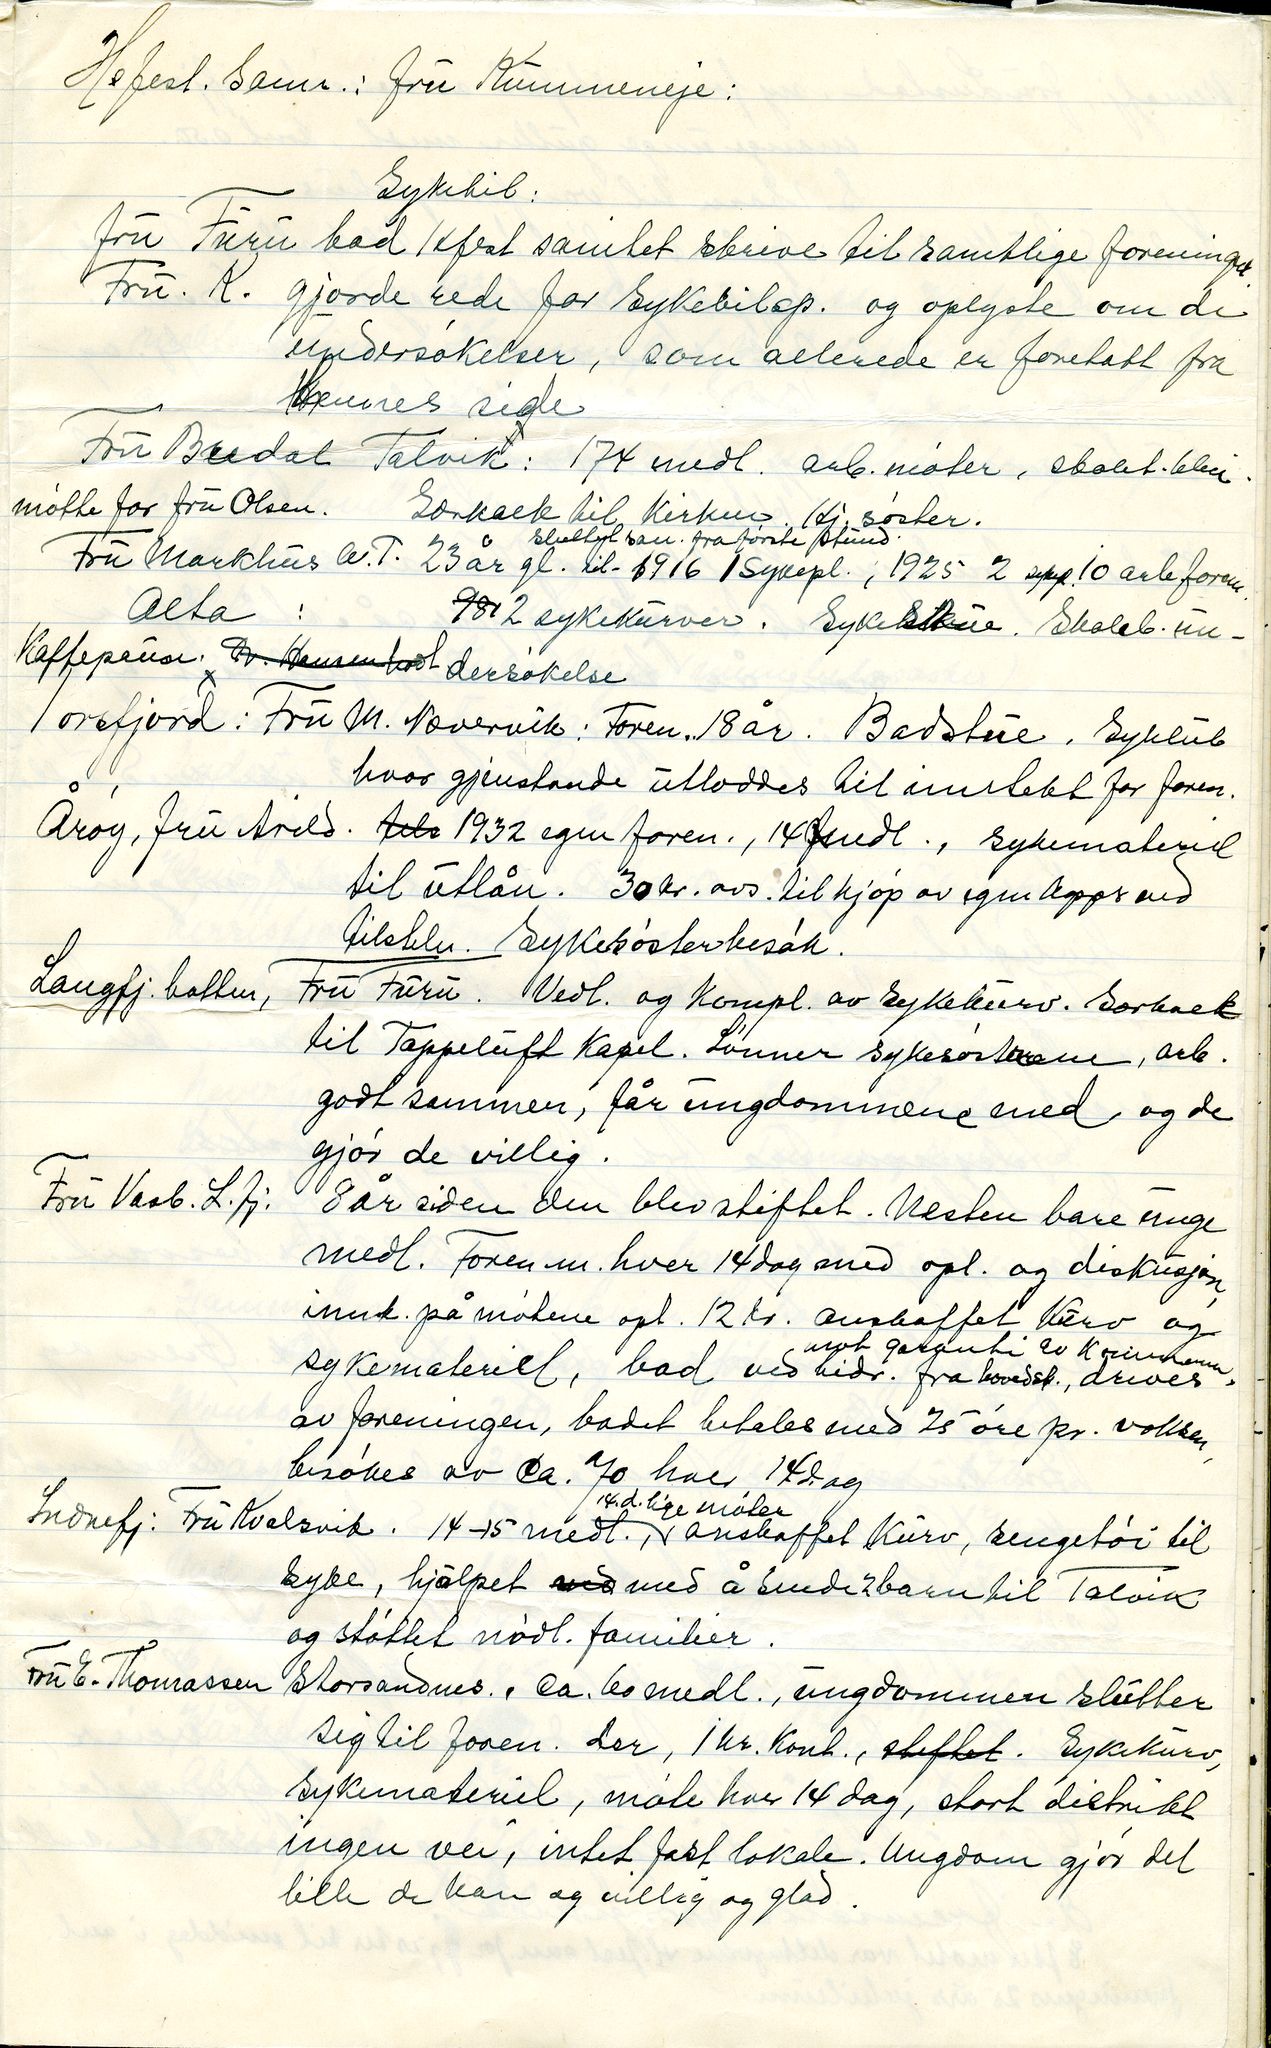 H.fest. Saml.: fru Kummeneje:
Sykebil:
fru Furu bad Kfest samlet skrive til samtlige foreninger.
Fru. K. gjorde rede for Sykebilsp. og oplyste om de
undersøkelser, som allerede er foretatt fra
Hennes side
Fru Bredal Talvik: 174 medl. arb. møter, skolet.
møtte for fru Olsen. Særkalk til Kirken. Hj. søster.
fra første stund.
Fru Markhus A.T. 23 år gl. til 1916 1 Sykepl., 1925 2 10 arb foren.
Alta : 2 sykekurver. Syke stue. Skoleb. un-
Kaffepause. Dr. Hansen holdt dersøkelse
Torsfjord: Fru M. Nævervik: Foren. 18 år. Badstue. Syklub
hvor gjenstande utloddes til inntekt for foren.
Årøy, fru Arild. 1932 egen foren., 14 medl., sykemateriel
til utlån. 30 kr. avs. til kjøp av egen Apps ved
tilsteln. Sykesøsterbesøk.
Langfj. botten, Fru Furu. Vedl. og kompl. av Sykekurv. Særkalk
til Tappeluft Kapel. Lønner sykesøstrene, arb.
godt sammen, får ungdommene med, og de
gjør de villig.
Fru Vasb. L. fj. 8 år siden den blev stiftet. Nesten bare unge
medl. Foren. m. hver 14 dag med opl. og diskusjon,
innk. på møtene opt. 12 kr. anskaffet Kurv og
mot garanti av Kommunen
sykemateriell, bad ved bidr. fra hovedst., drives
av foreningen, badet betales med 25 øre pr. voksen,
besøkes av ca. 70 hver 14 dag
14.d.lige møter
Indrefj: Fru Kvalsvik. 14-15 medl., anskaffet Kurv, sengetøi til
syke, hjälpet med å sende 2 barn til Talvik
og støttet nødl. familier.
Fru E. Thomassen Storsandnes. Ca. 60 medl., ungdommen slutter
sig til foren. der, 1 kr. kont., stiftet. Sykekurv,
sykemateriel, møte hver 14 dag, stort distrikt
ingen vei, intet fast lokale. Ungdom gjør det
lille de kan og villig og glad.